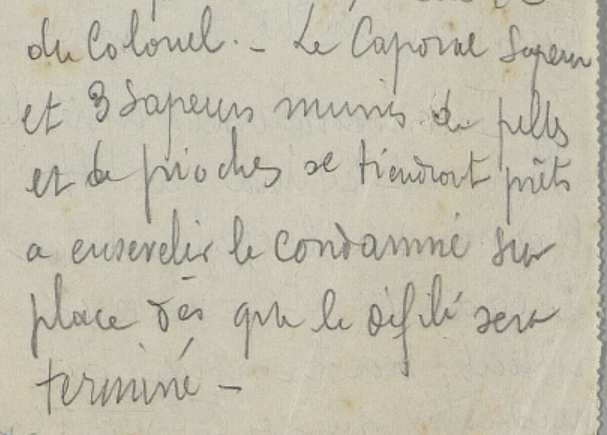 du Colonel. - Le Caporal Sapeur
et 3 Sapeurs munis de pelles
et de pioches se tiendront prêts
a ensevelir le condamné sur
place dès que le défilé sera
terminé -